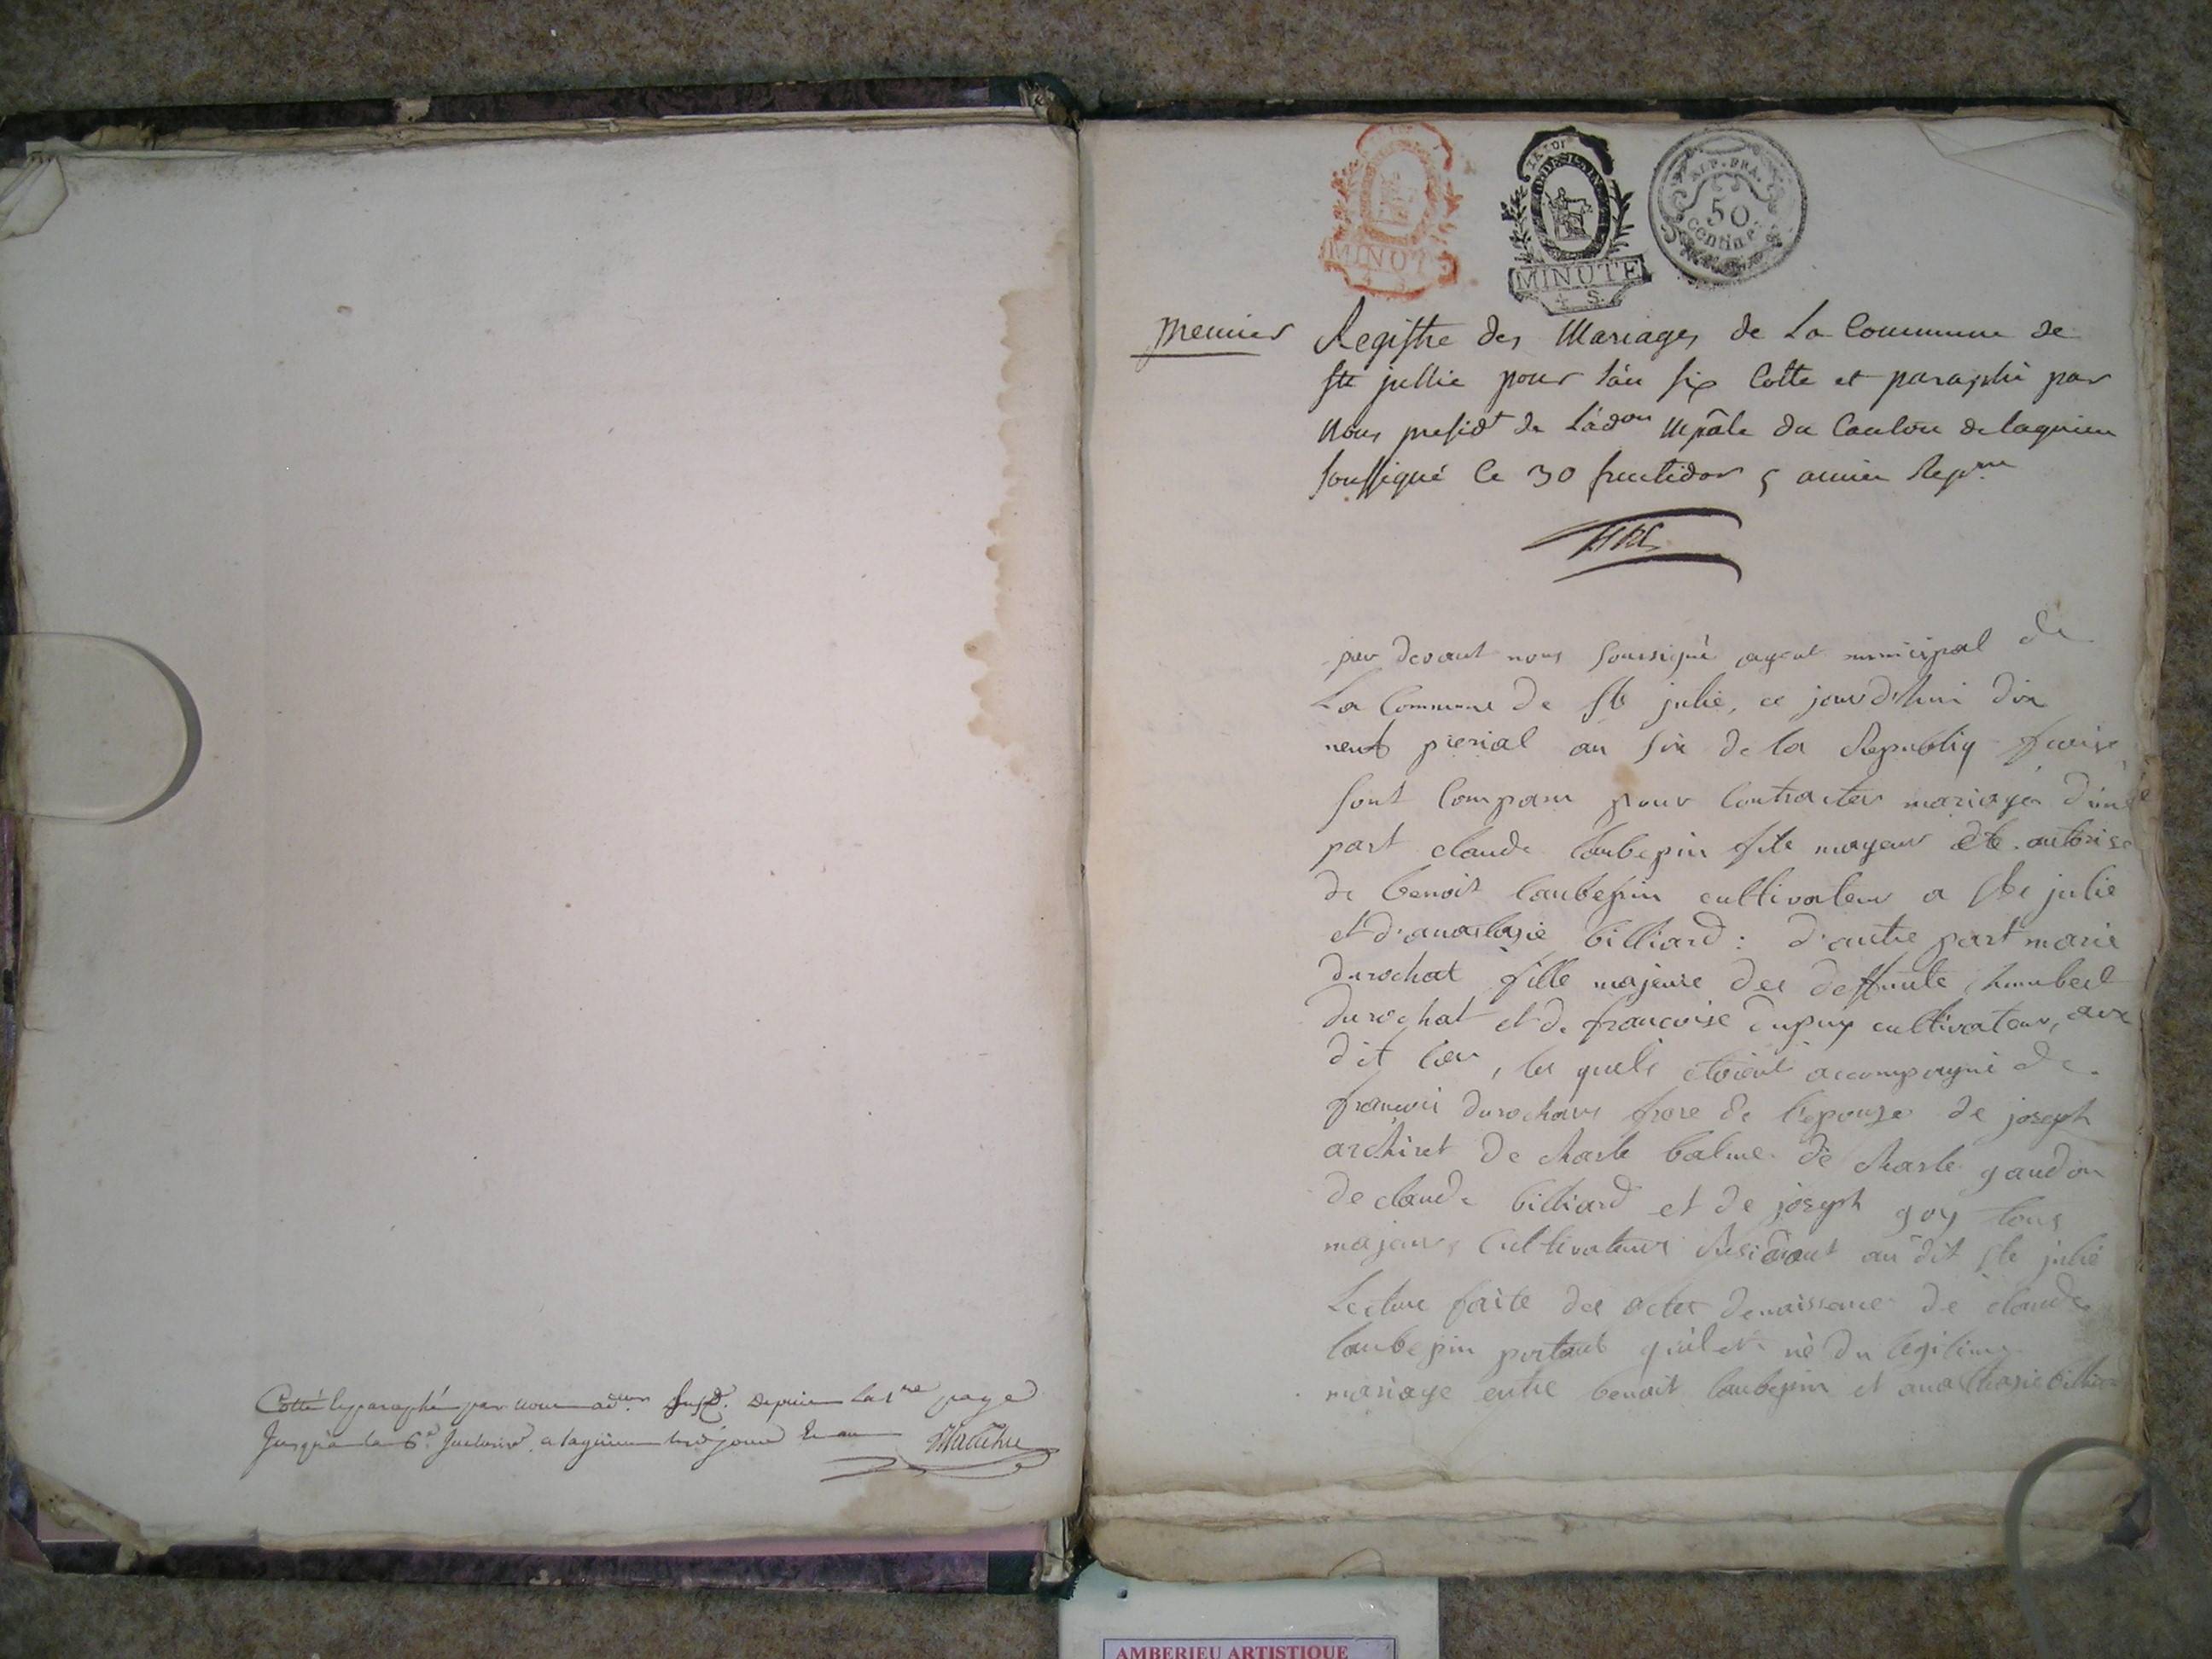 Cotté & paraphé par nous ad.on Susd. Depuis la 1re page
Jusqu'a la 6e Inclusivt. a lagnieu lesd. jour & an Matthieu
MINUTE
4 S.
MINUTE
4 S.
REP. FRA.
50
centimes
premier
Registre des Mariages de La Commune de
Ste jullie pour l'an six Cotte et paraphé par
Nous presidt de L'adon Mpâle du Canton de lagnieu
soussigné le 30 fructidor 5 annee Repne
par devant nous soussigné agent municipal de
La Commune de Ste julie, ce jourd'hui dix
neuf prerial an six de la Republiq
sont Comparu pour Contracter mariage d'une
part claude Caubepin fils mayeur autorise
de benoit Caubepin cultivateur a Ste julie
et d'anastasie billiard : d'autre part marie
durochat fille majeure des deffunte humbert
durochat et de francoise dupuy cultivateur, aux
dit lieu, les quels etoient accompagné de
francois durochat frere de l'epouse de joseph
archiret de charle balme de charle gaudon
de claude billiard et de joseph goy tous
majeurs Cultivateurs Residant au dit Ste julie
Lecture faite des actes de naissance de claude
Caubepin portant qu'il est né du legitime
mariage entre benoit Caubepin et anasthasie billiard
AMBERIEU ARTISTIQUE